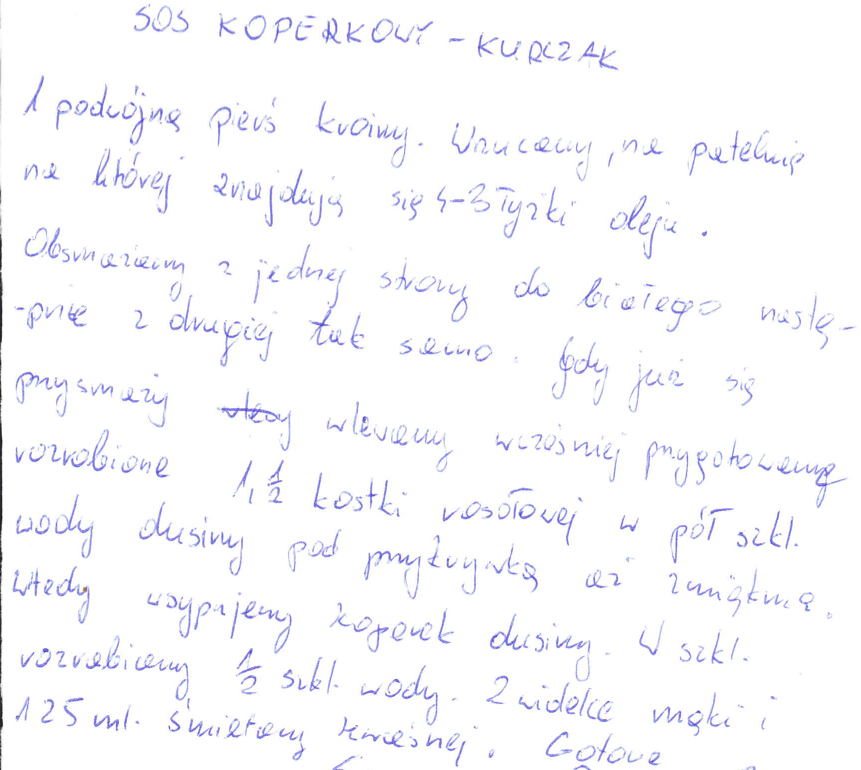 SOS KOPERKOWY - KURCZAK
1 podwójną pierś kroimy. Wrzucamy, na patelnię
na której znajdują się 4-3 łyżki oleju.
Obsmażamy z jednej strony do białego nastę-
-pnie z drugiej tak samo. Gdy już się
przysmaży wlewamy wcześniej przygotowaną
rozrobione 1,½ kostki rosołowej w pół szkl.
wody dusimy pod przykrywką aż zmiękną.
Wtedy wsypujemy koperek dusimy. W szkl.
rozrabiamy ½ szkl. wody. 2 widelce mąki i
125 ml. śmietany kwaśnej. Gotowe